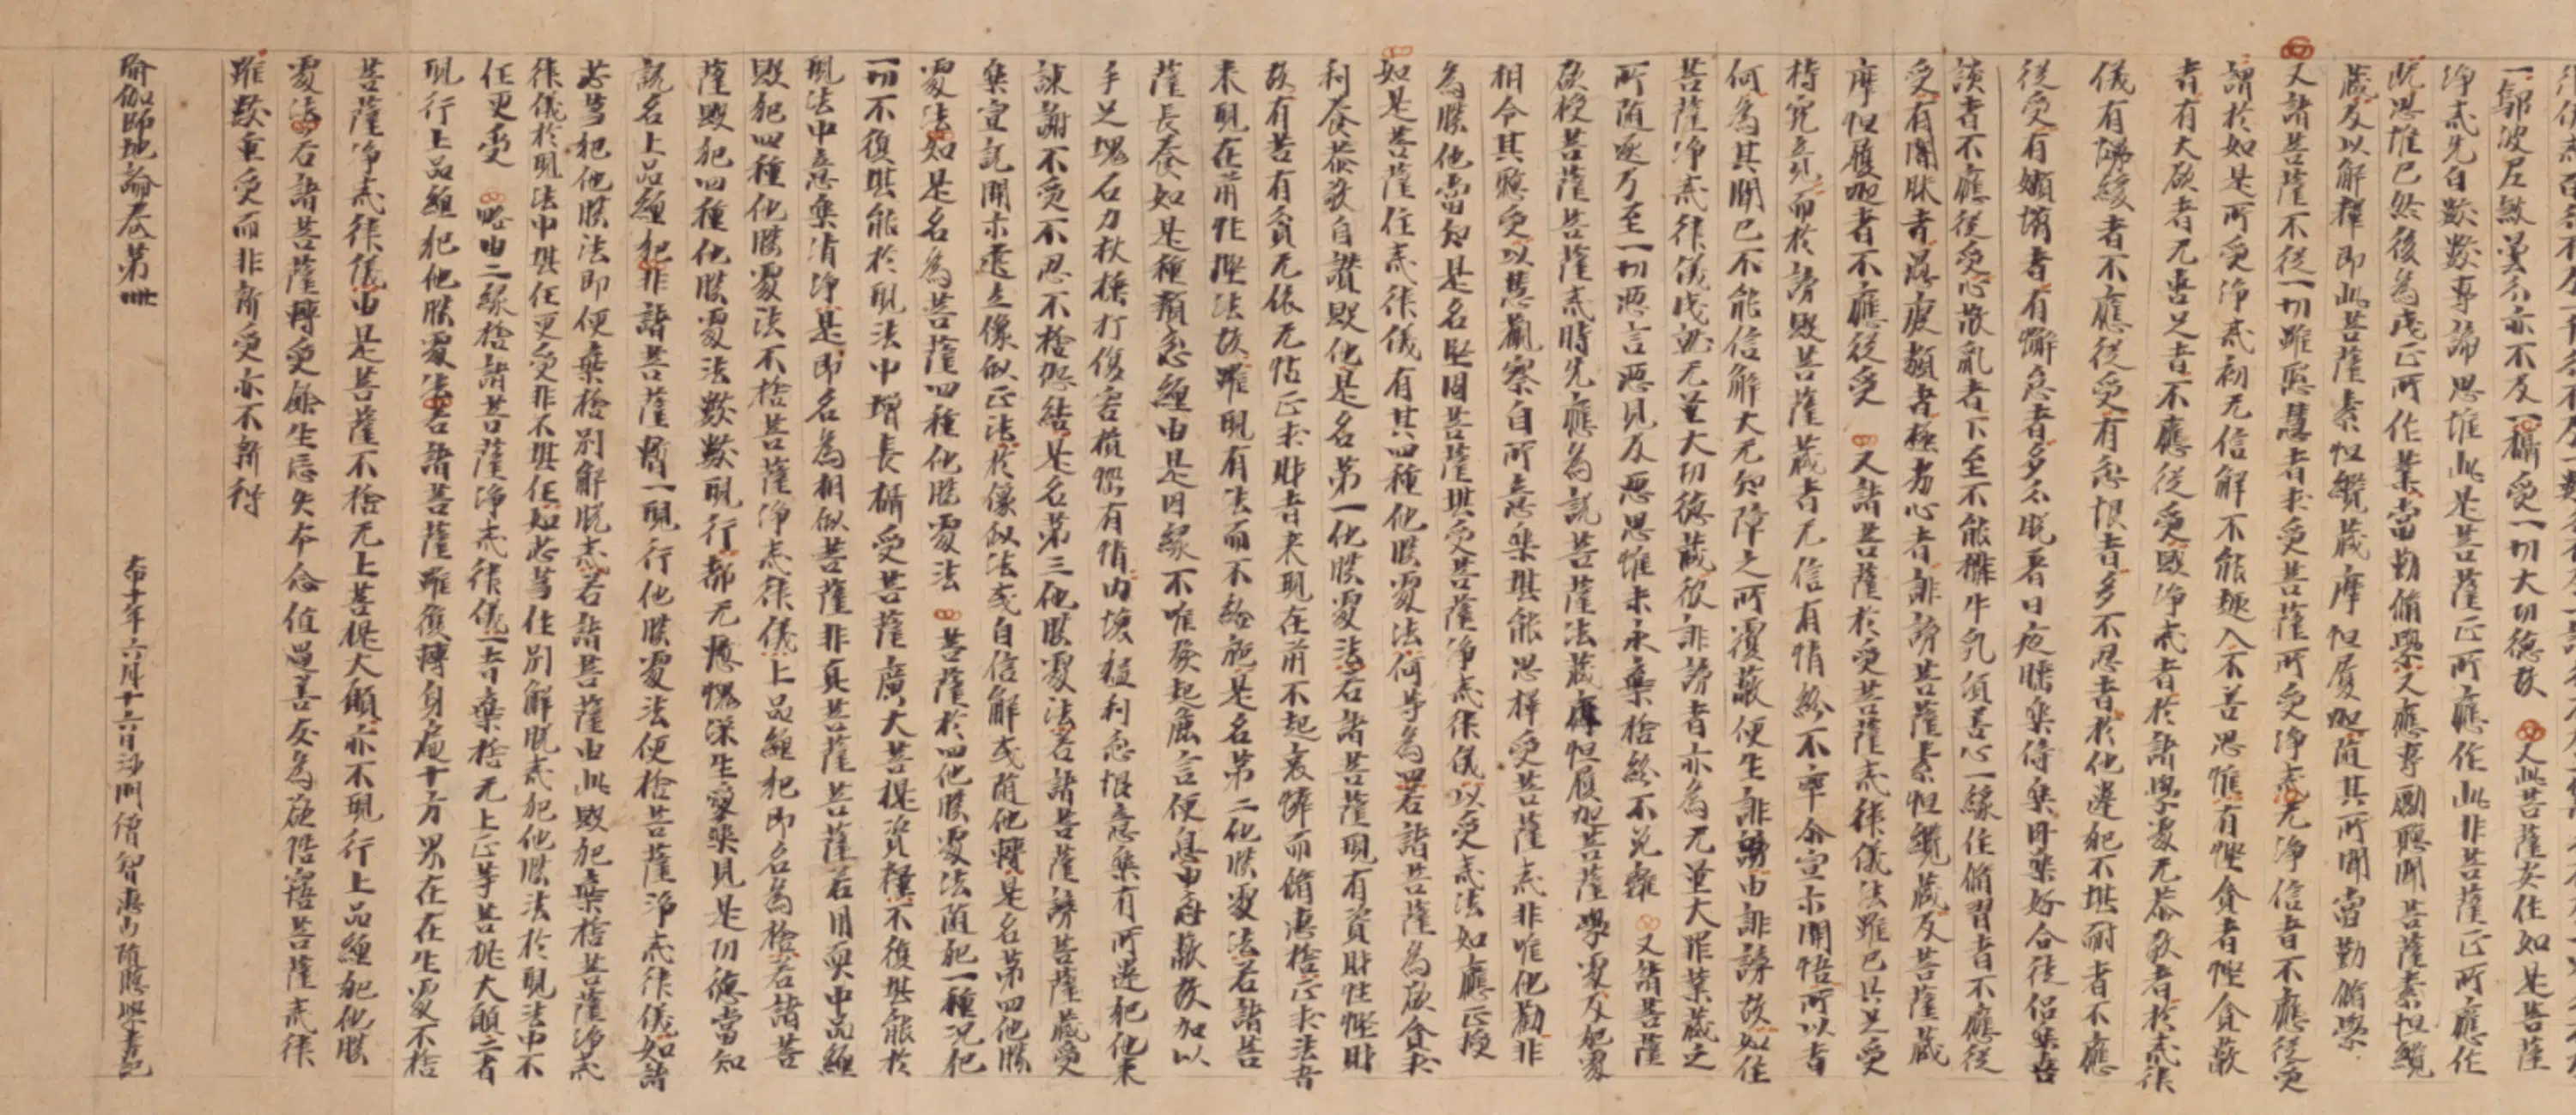 一鄔波尼殺曇分亦不及一攝受一切大功德故 又此菩薩安住如是菩薩
淨戒先自數數專諦思惟此是菩薩正所應作此非菩薩正所應作
既思惟已然後為成正所作業當勤脩學又應專勵聽聞菩薩素怛纜
藏及以解釋即此菩薩素怛纜藏摩怛履迦隨其所聞當勤脩學
又諸菩薩不從一切雖聰慧者求受菩薩所受淨戒无淨信者不應從受
謂於如是所受淨戒初无信解不能趣入不善思惟有慳貪者慳貪蔽
者有大欲者无喜足者不應從受毀淨戒者於諸學處无恭敬者於戒律
儀有慢緩者不應從受有忿恨者多不忍者於他違犯不堪耐者不應
從受有嬾墯者有懈怠者多分耽著日夜睡樂倚樂臥樂好合徒侶樂喜
談者不應從受心散亂者下至不能搆牛乳頃善心一緣住脩習者不應從
受有闇昧者愚癡類者極劣心者誹謗菩薩素怛纜藏及菩薩藏
摩怛履迦者不應從受 又諸菩薩於受菩薩戒律儀法雖已具足受
持究竟而於謗毀菩薩藏者无信有情終不率尒宣示開悟所以者
何為其聞已不能信解大无知障之所覆蔽便生誹謗由誹謗故如住
菩薩淨戒律儀成就无量大功德藏彼誹謗者亦為无量大罪業藏之
所隨逐乃至一切惡言惡見及惡思惟未永棄捨終不免離 又諸菩薩
欲授菩薩菩薩戒時先應為說菩薩法藏摩怛履迦菩薩學處及犯處
相令其聽受以慧觀察自所意樂堪能思擇受菩薩戒非唯他勸非
為勝他當知是名堅固菩薩堪受菩薩淨戒律儀以受戒法如應正授
如是菩薩住戒律儀有其四種他勝處法何等為四若諸菩薩為欲貪求
利養恭敬自讚毀他是名第一他勝處法若諸菩薩現有資財性慳財
故有苦有貧无依无怙正求財者來現在前不起哀憐而脩惠捨正求法者
來現在前性慳法故雖現有法而不給施是名第二他勝處法若諸菩
薩長養如是種類忿纏由是因緣不唯發起麁言便息由忿蔽故加以
手足塊石刀杖捶打傷害損惱有情內懷猛利忿恨意樂有所違犯他來
諫謝不受不忍不捨怨結是名第三他勝處法若諸菩薩謗菩薩藏愛
樂宣說開示建立像似正法於像似法或自信解或隨他轉是名第四他勝
處法如是名為菩薩四種他勝處法 菩薩於四他勝處法隨犯一種況犯
一切不復堪能於現法中增長攝受菩薩廣大菩提資糧不復堪能於
現法中意樂清淨是即名為相似菩薩非真菩薩菩薩若用耎中品纏
毀犯四種他勝處法不捨菩薩淨戒律儀上品纏犯即名為捨若諸菩
薩毀犯四種他勝處法數數現行都无慚愧深生愛樂見是功德當知
說名上品纏犯非諸菩薩暫一現行他勝處法便捨菩薩淨戒律儀如諸
苾芻犯他勝法即便棄捨別解脫戒若諸菩薩由此毀犯棄捨菩薩淨戒
律儀於現法中堪任更受非不堪任如苾芻住別解脫戒犯他勝法於現法中不
任更受 略由二緣捨諸菩薩淨戒律儀一者棄捨无上正等菩提大願二者
現行上品纏犯他勝處法若諸菩薩雖復轉身遍十方界在在生處不捨
菩薩淨戒律儀由是菩薩不捨无上菩提大願亦不現行上品纏犯他勝
處法若諸菩薩轉受餘生忘失本念值遇善友為欲悟寤菩薩戒律
雖數重受而非新受亦不新得
瑜伽師地論卷第卌
年六月十六日沙門僧智惠山隨聽學書記